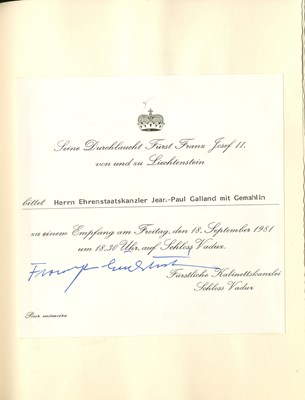 Seine Durchlaucht Fürst Franz Josef II.
von und zu Liechtenstein
bittet Herrn Ehrenstaatskanzler Jean-Paul Galland mit Gemahlin
zu einem Empfang am Freitag, den 18. September 1981
um 18.30 Uhr, auf Schloss Vaduz.
Fürstliche Kabinettskanzlei
Schloss Vaduz
Pour mémoire